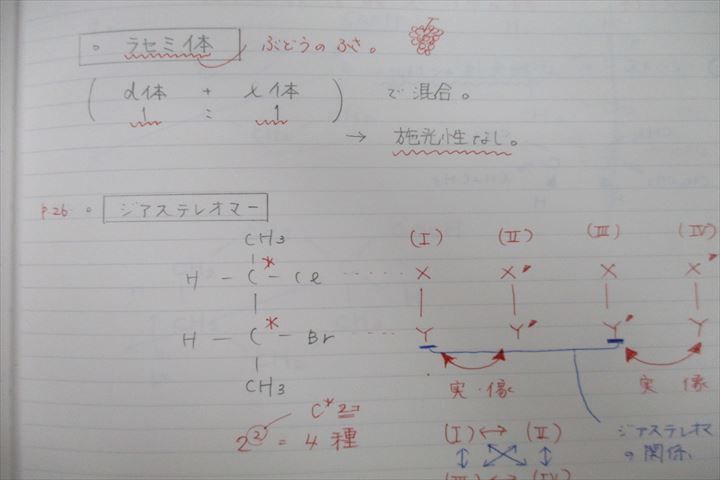 。ラセミ体 ぶどうのふさ。
( d体 + l体 ) で混合。
1 : 1
→ 施光性なし。
p.26 。ジアステレオマー
CH3 (I) (II) (III) (IV)
H - C* - Cl ...... X X' X X'
H - C* - Br ...... Y Y' Y' Y
CH3 実・像 実 像
C* 2コ
2② = 4種 (I) ↔ (II) ジアステレオマ
の関係、
(III) ↔ (IV)